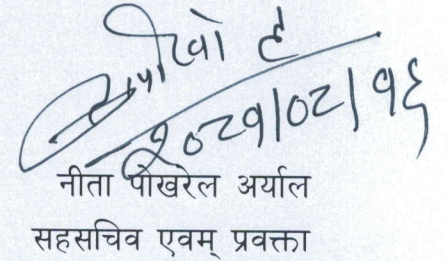 २०८१/०२/१६
नीता पोखरेल अर्याल
सहसचिव एवम् प्रवक्ता